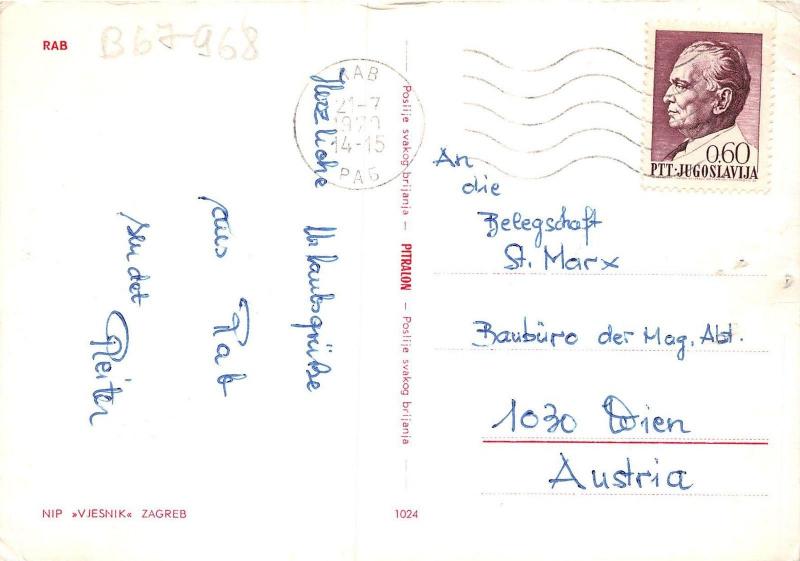 RAB
B67-968
Herzliche Urlaubsgrüße
aus Rab
sendet
Reiter
NIP »VJESNIK« ZAGREB
Poslije svakog brijanja – PITRALON – Poslije svakog brijanja –
1024
RAB
21-7
1970
14-15
РАБ
0.60
PTT·JUGOSLAVIJA
An
die
Belegschaft
St. Marx
Baubüro der Mag. Abt.
1030 Wien
Austria